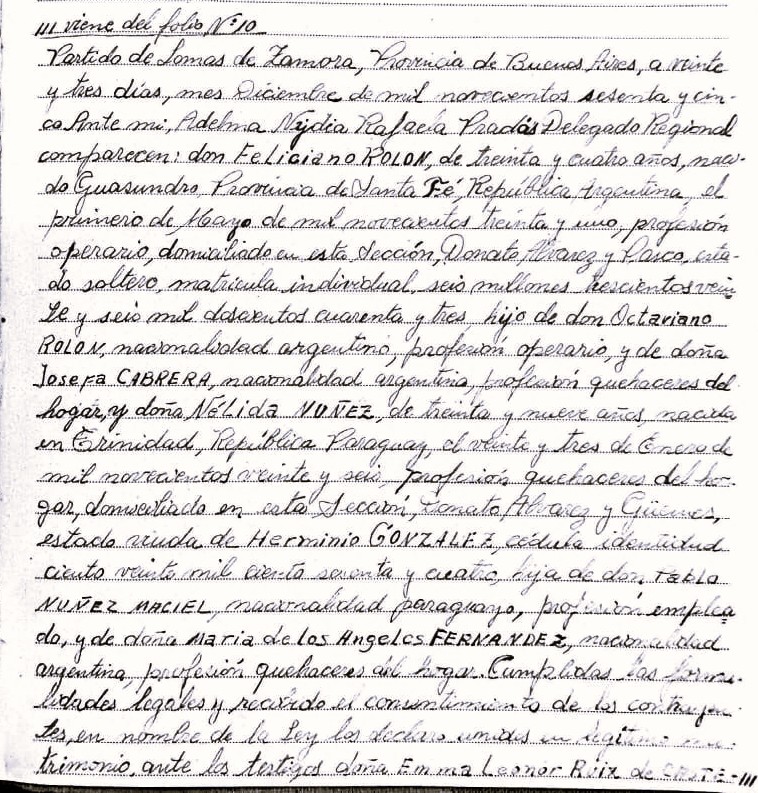 /// viene del folio Nº 10
Partido de Lomas de Zamora, Provincia de Buenos Aires, a veinte
y tres días, mes Diciembre de mil novecientos sesenta y cin-
co Ante mi, Adelma Nydia Rafaela Pradás Delegado Regional
comparecen: don Feliciano ROLON, de treinta y cuatro años, naci-
do Guasundro Provincia de Santa Fé, República Argentina, el
primero de Mayo de mil novecientos treinta y uno, profesión
operario, domiciliado en esta Sección, Donato Alvarez y Pasco, esta-
do soltero, matricula individual, seis millones trescientos vein
te y seis mil doscientos cuarenta y tres, hijo de don Octaviano
ROLON, nacionalidad argentino, profesión operario, y de doña
Josefa CABRERA, nacionalidad argentina, profesión quehaceres del
hogar, y doña Nélida NUÑEZ, de treinta y nueve años, nacida
en Trinidad, República Paraguay, el veinte y tres de Enero de
mil novecientos veinte y seis, profesión quehaceres del ho-
gar, domiciliado en esta Sección, Donato Alvarez y Güemes,
estado viuda de Herminio GONZALEZ, cédula identidad
ciento veinte mil ciento y cuatro, hija de don Pablo
NUÑEZ MACIEL, nacionalidad paraguayo, profesión emplea
do, y de doña Maria de los Angeles FERNANDEZ, nacionalidad
argentina, profesión quehaceres del hogar. Cumplidas las forma-
lidades legales y recibido el consentimiento de los contrayen
tes, en nombre de la Ley los declaro unidos en legítimo ma-
trimonio, ante los testigos doña Emma Leonor Ruiz de CASTE-///